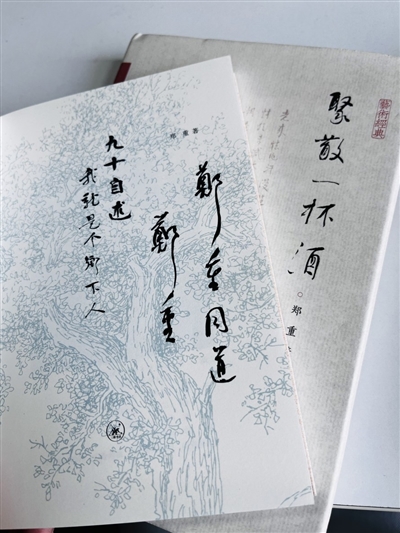 郑重 著
九十自述
我就是个鄉下人
鄭重同道
鄭重
藝術經典
聚散一杯酒
郑重